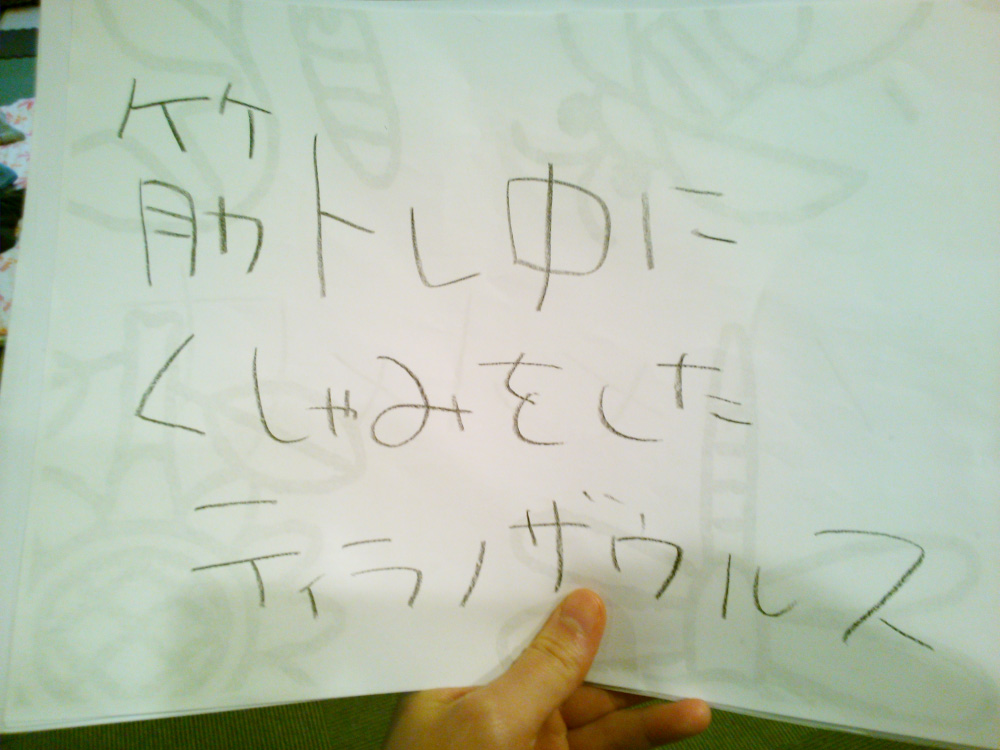 筋トレ中に
くしゃみをした
ティラノザウルス